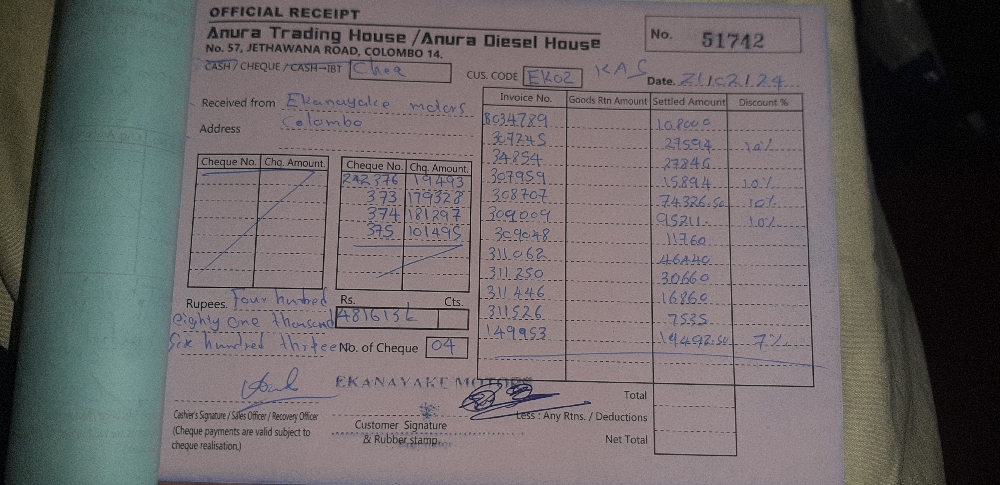 OFFICIAL RECEIPT
Anura Trading House /Anura Diesel House
No. 57, JETHAWANA ROAD, COLOMBO 14.
No. 51742
CASH / CHEQUE / CASH-IBT Cheq
CUS. CODE EK02 KAS Date. 21/02/24
Received from Ekanayake motors
Address Colombo
Cheque No. Chq. Amount.
Cheque No. Chq. Amount.
242376 19493
373 179328
374 181297
375 101495
Invoice No. Goods Rtn Amount Settled Amount Discount %
8034789 108000
307245 27594 10%
34854 27846
307959 15894 10%
308707 74326.50 10%
309009 95211. 10%
309048 11760
311062 46440
311250 30660
311446 16860
311526 7535
149953 19492.50 7%
Rupees. Four hunbed
eighty one thousand
Six hundred thrtee
Rs. Cts.
481613
No. of Cheque 04
EKANAYAKE MOTORS
Total
Less : Any Rtns. / Deductions
Net Total
Cashier's Signature / Sales Officer / Recovery Officer
(Cheque payments are valid subject to
cheque realisation.)
Customer Signature
& Rubber stamp